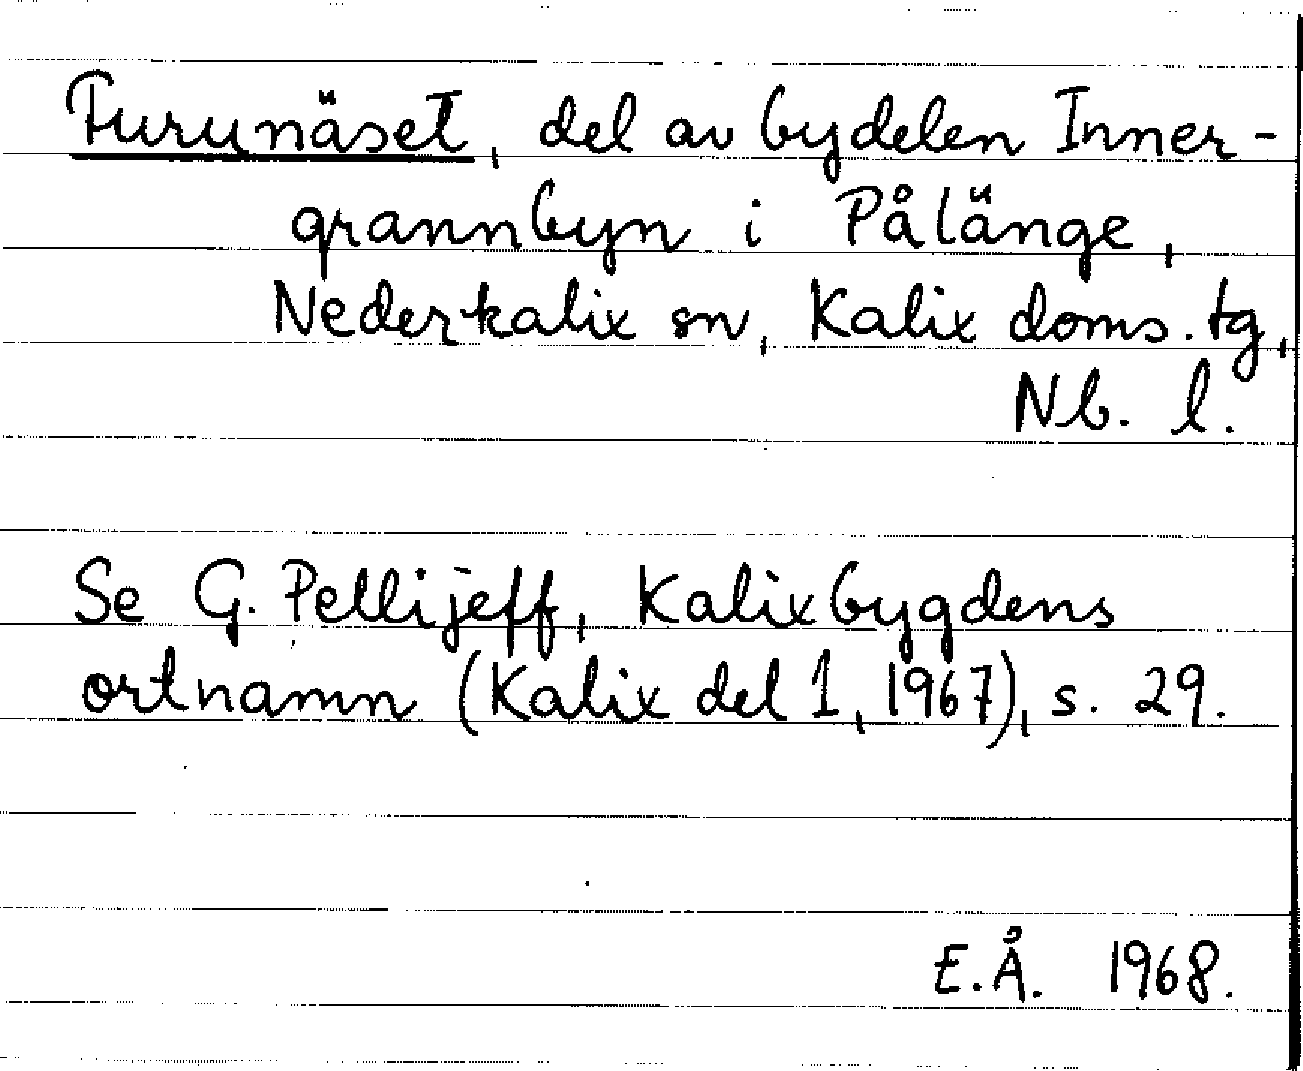 Furunäset, del av bydelen Inner-
grannbyn i Pålänge,
Nederkalix sn, Kalix doms. tg,
Nb. l.
Se G. Pellijeff, Kalixbygdens
ortnamn (Kalix del 1, 1967), s. 29.
E.Å. 1968.